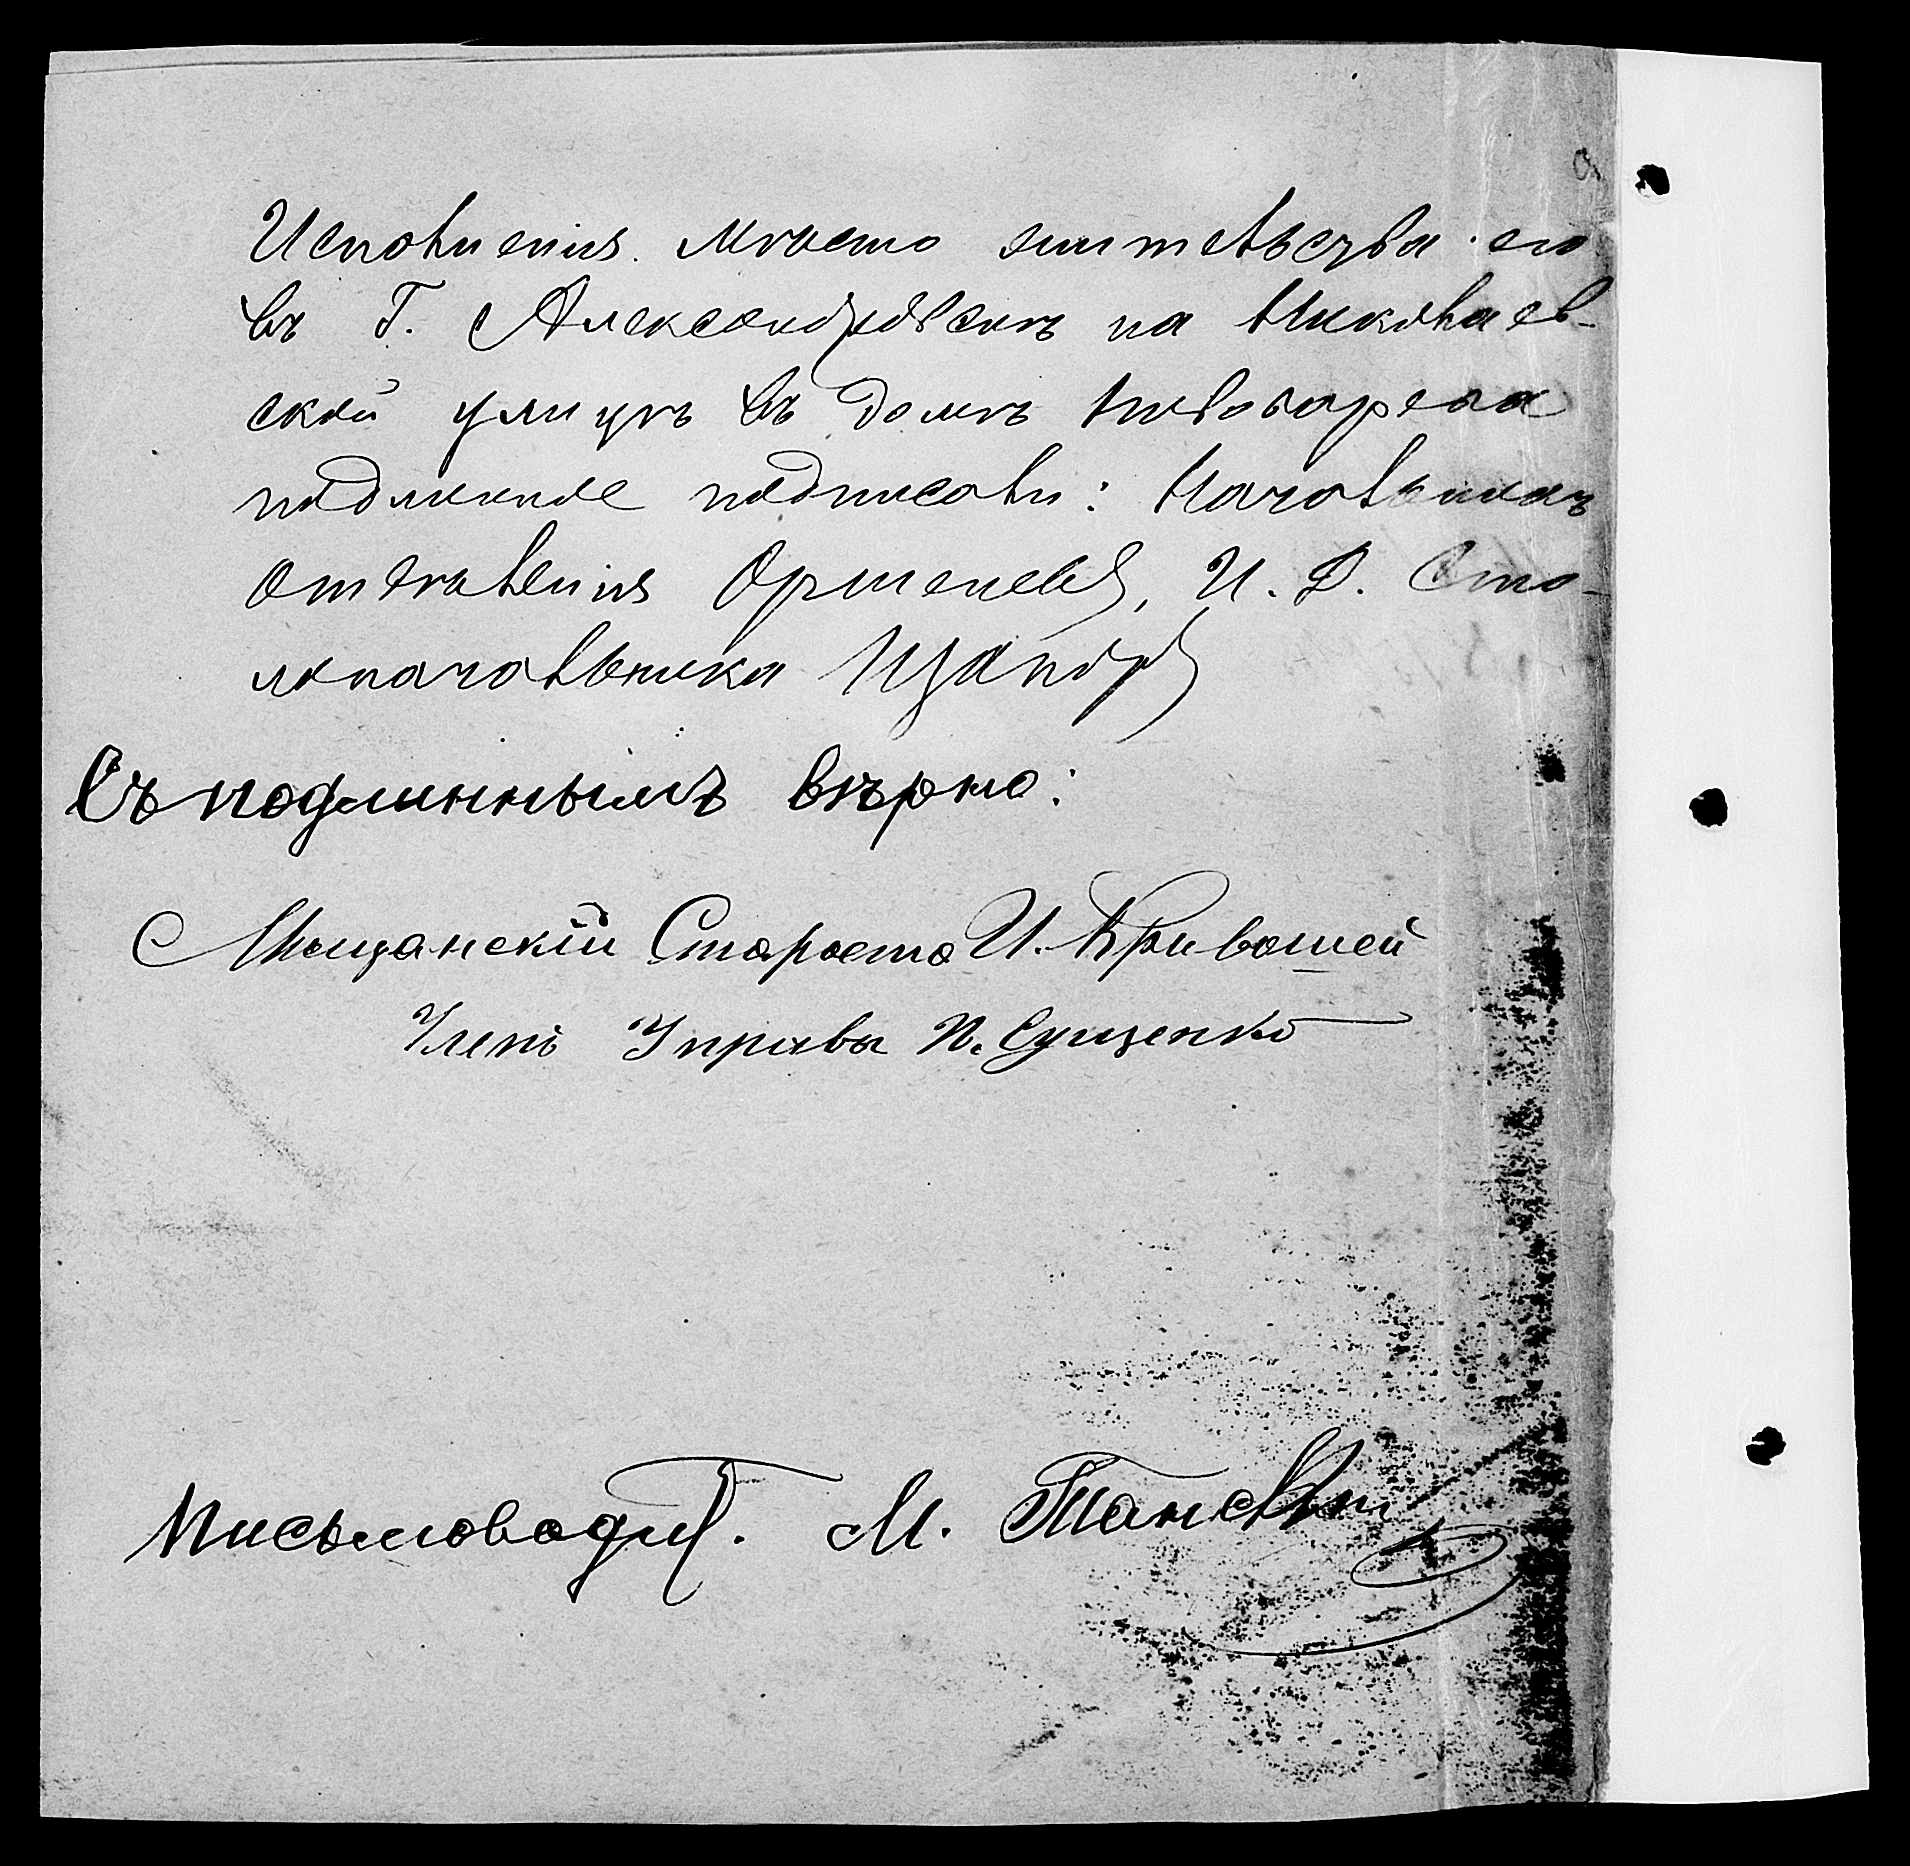 Исполненія. Мѣсто жительства его
въ Г. Александровскѣ на Николаев-
ской улицѣ въ домѣ
подлинное подписали: Начальникъ
Отдѣленія И. Д. Сто-
лоначальника Щапов
Съ подлиннымъ вѣрно:
Мѣщанскій Староста И. Кривошей
Членъ Управы П. Сущенко
Письмовод. М.